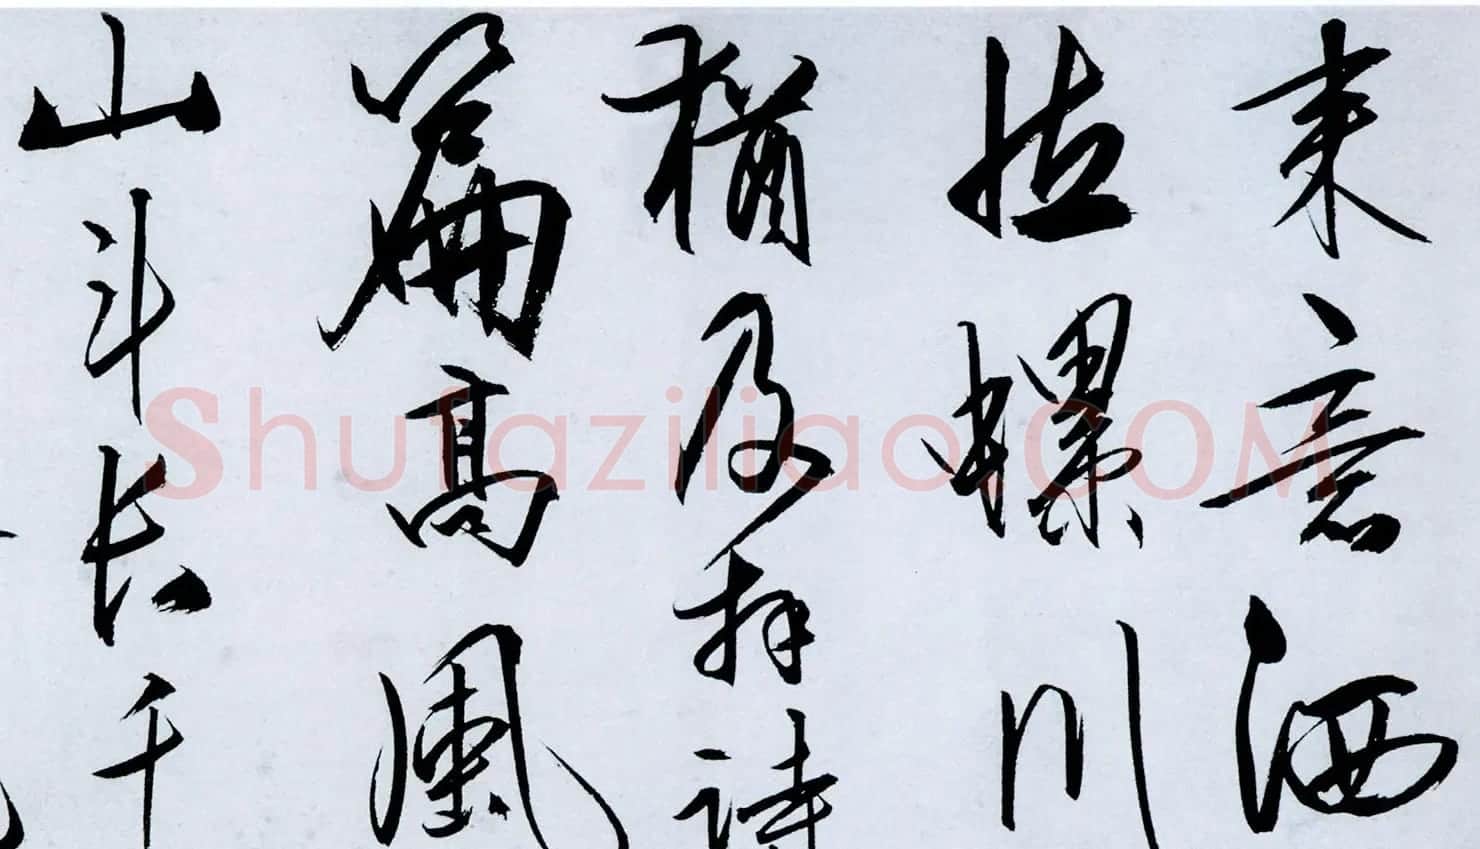 来意洒
拉螺川
犹及拜詩
篇高風
山斗长千
Shufaziliao.COM